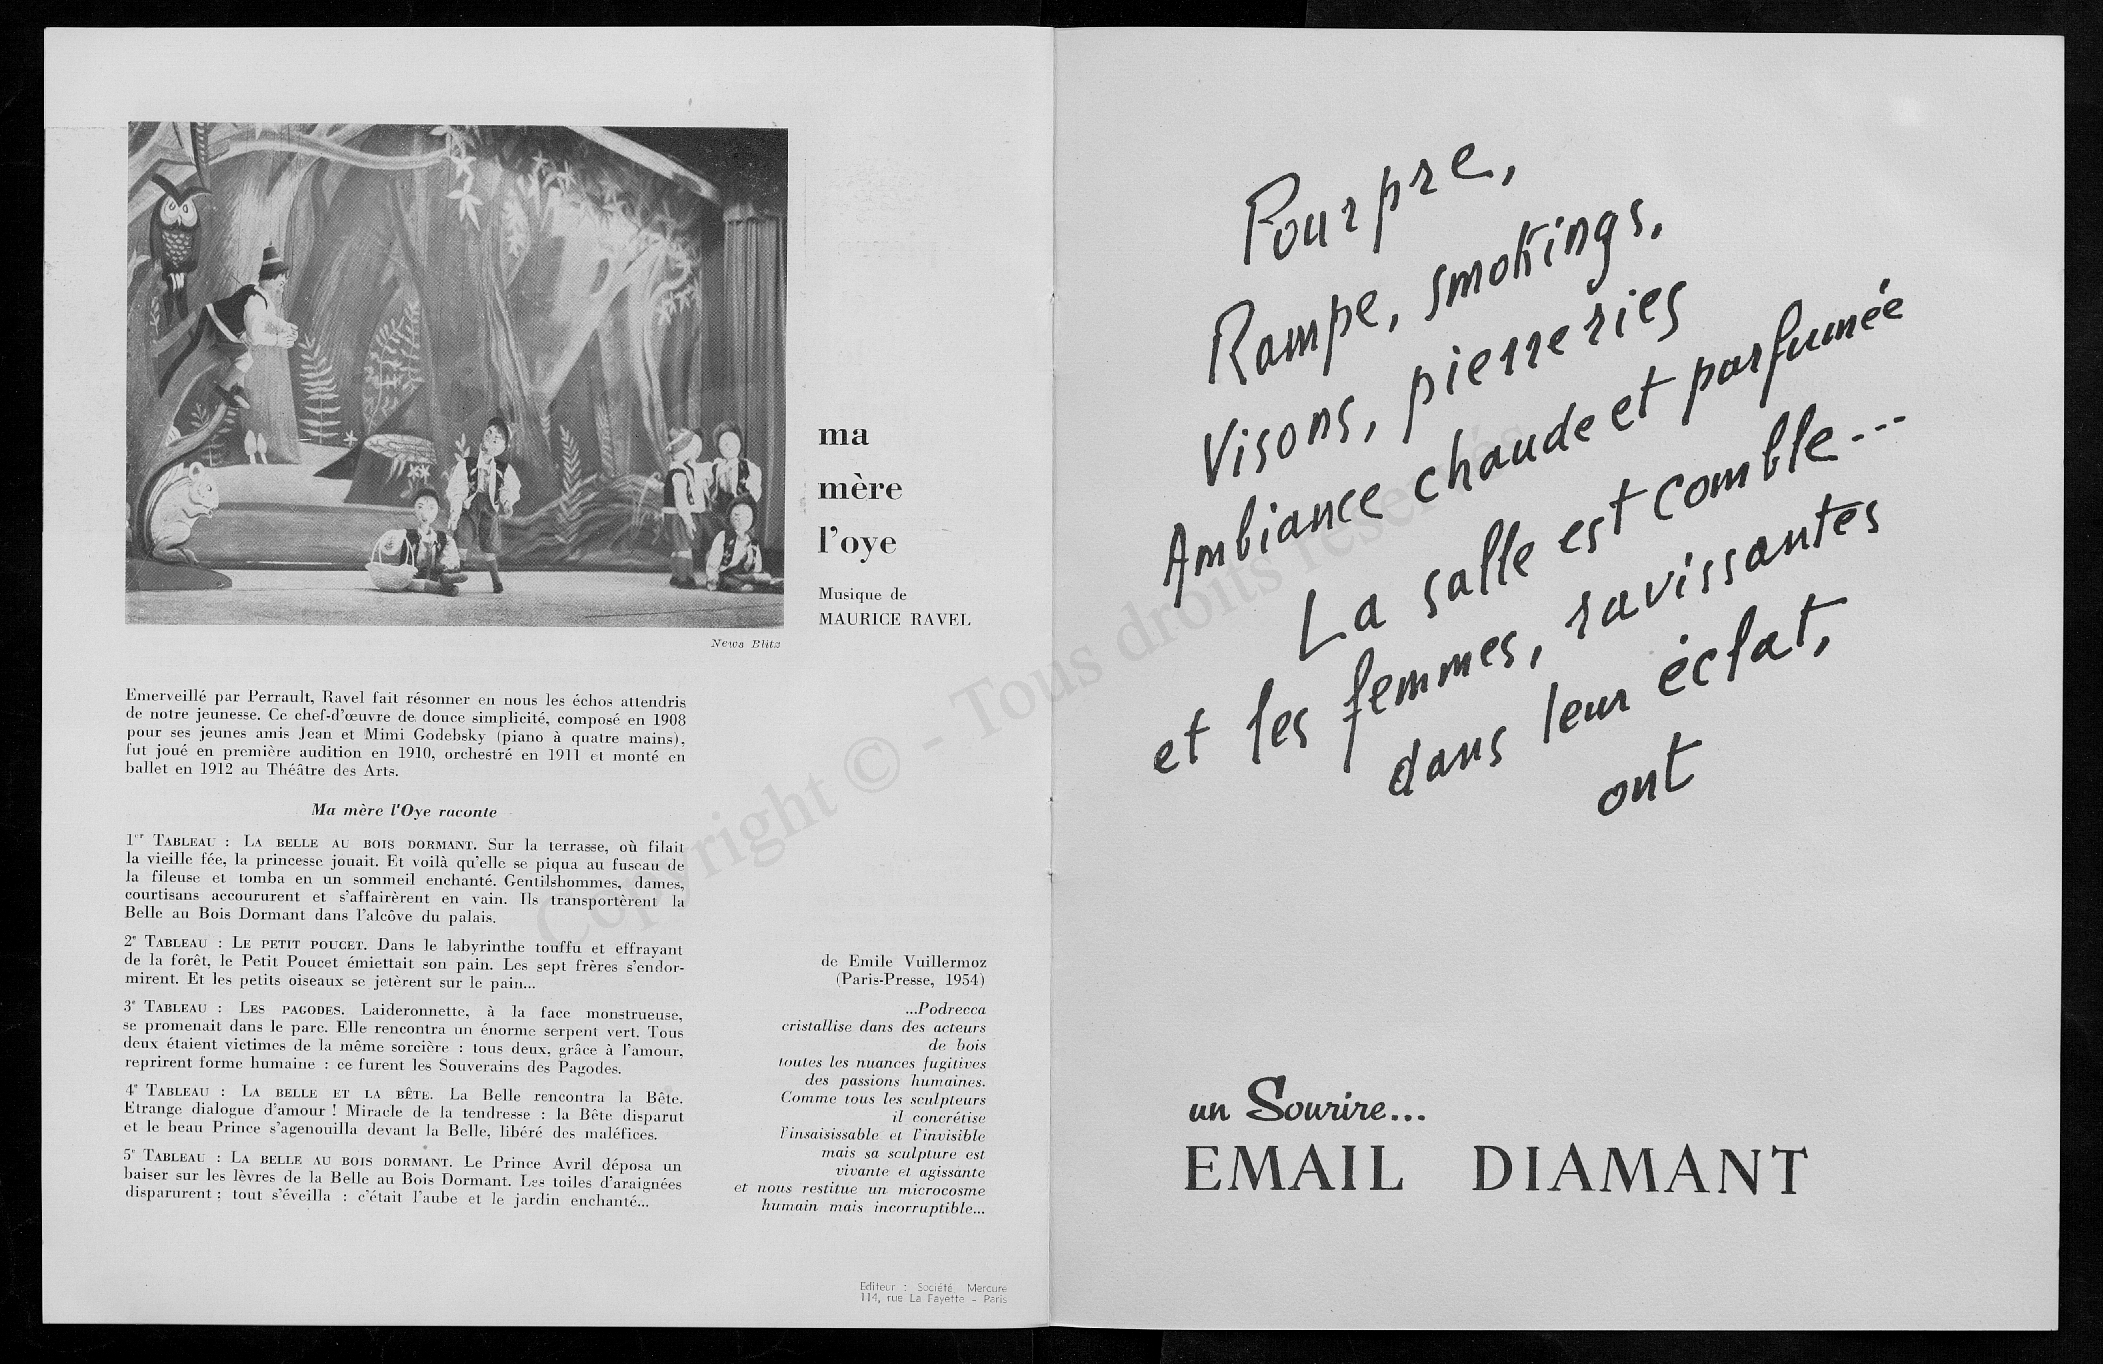 ma
mère
l'oye
Musique de
MAURICE RAVEL
News Blitz
Emerveillé par Perrault, Ravel fait résonner en nous les échos attendris
de notre jeunesse. Ce chef-d'œuvre de douce simplicité, composé en 1908
pour ses jeunes amis Jean et Mimi Godebsky (piano à quatre mains),
fut joué en première audition en 1910, orchestré en 1911 et monté en
ballet en 1912 au Théâtre des Arts.
Ma mère l'Oye raconte
1er TABLEAU : LA BELLE AU BOIS DORMANT. Sur la terrasse, où filait
la vieille fée, la princesse jouait. Et voilà qu'elle se piqua au fuseau de
la fileuse et tomba en un sommeil enchanté. Gentilshommes, dames,
courtisans accoururent et s'affairèrent en vain. Ils transportèrent la
Belle au Bois Dormant dans l'alcôve du palais.
2e TABLEAU : LE PETIT POUCET. Dans le labyrinthe touffu et effrayant
de la forêt, le Petit Poucet émiettait son pain. Les sept frères s'endor-
mirent. Et les petits oiseaux se jetèrent sur le pain...
3e TABLEAU : LES PAGODES. Laideronnette, à la face monstrueuse,
se promenait dans le parc. Elle rencontra un énorme serpent vert. Tous
deux étaient victimes de la même sorcière : tous deux, grâce à l'amour,
reprirent forme humaine : ce furent les Souverains des Pagodes.
4e TABLEAU : LA BELLE ET LA BÊTE. La Belle rencontra la Bête.
Etrange dialogue d'amour ! Miracle de la tendresse : la Bête disparut
et le beau Prince s'agenouilla devant la Belle, libéré des maléfices.
5e TABLEAU : LA BELLE AU BOIS DORMANT. Le Prince Avril déposa un
baiser sur les lèvres de la Belle au Bois Dormant. Les toiles d'araignées
disparurent ; tout s'éveilla : c'était l'aube et le jardin enchanté...
de Emile Vuillermoz
(Paris-Presse, 1954)
...Podrecca
cristallise dans des acteurs
de bois
toutes les nuances fugitives
des passions humaines.
Comme tous les sculpteurs
il concrétise
l'insaisissable et l'invisible
mais sa sculpture est
vivante et agissante
et nous restitue un microcosme
humain mais incorruptible...
Editeur : Société Mercure
114, rue La Fayette - Paris
Pourpre,
Rampe, smokings,
Visons, pierreries
Ambiance chaude et parfumée
La salle est comble...
et les femmes, ravissantes
dans leur éclat,
ont
un Sourire...
EMAIL DIAMANT
Copyright © - Tous droits réservés